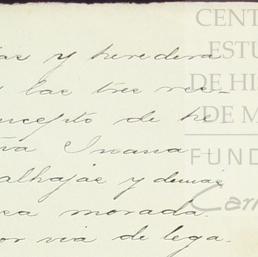 as y heredera
las tres res-
oncepto de he
va Juana
alhajas y demas
sea morada.
or via de lega.
CENT
ESTU
DE HIS
DE M
FUND
Carm